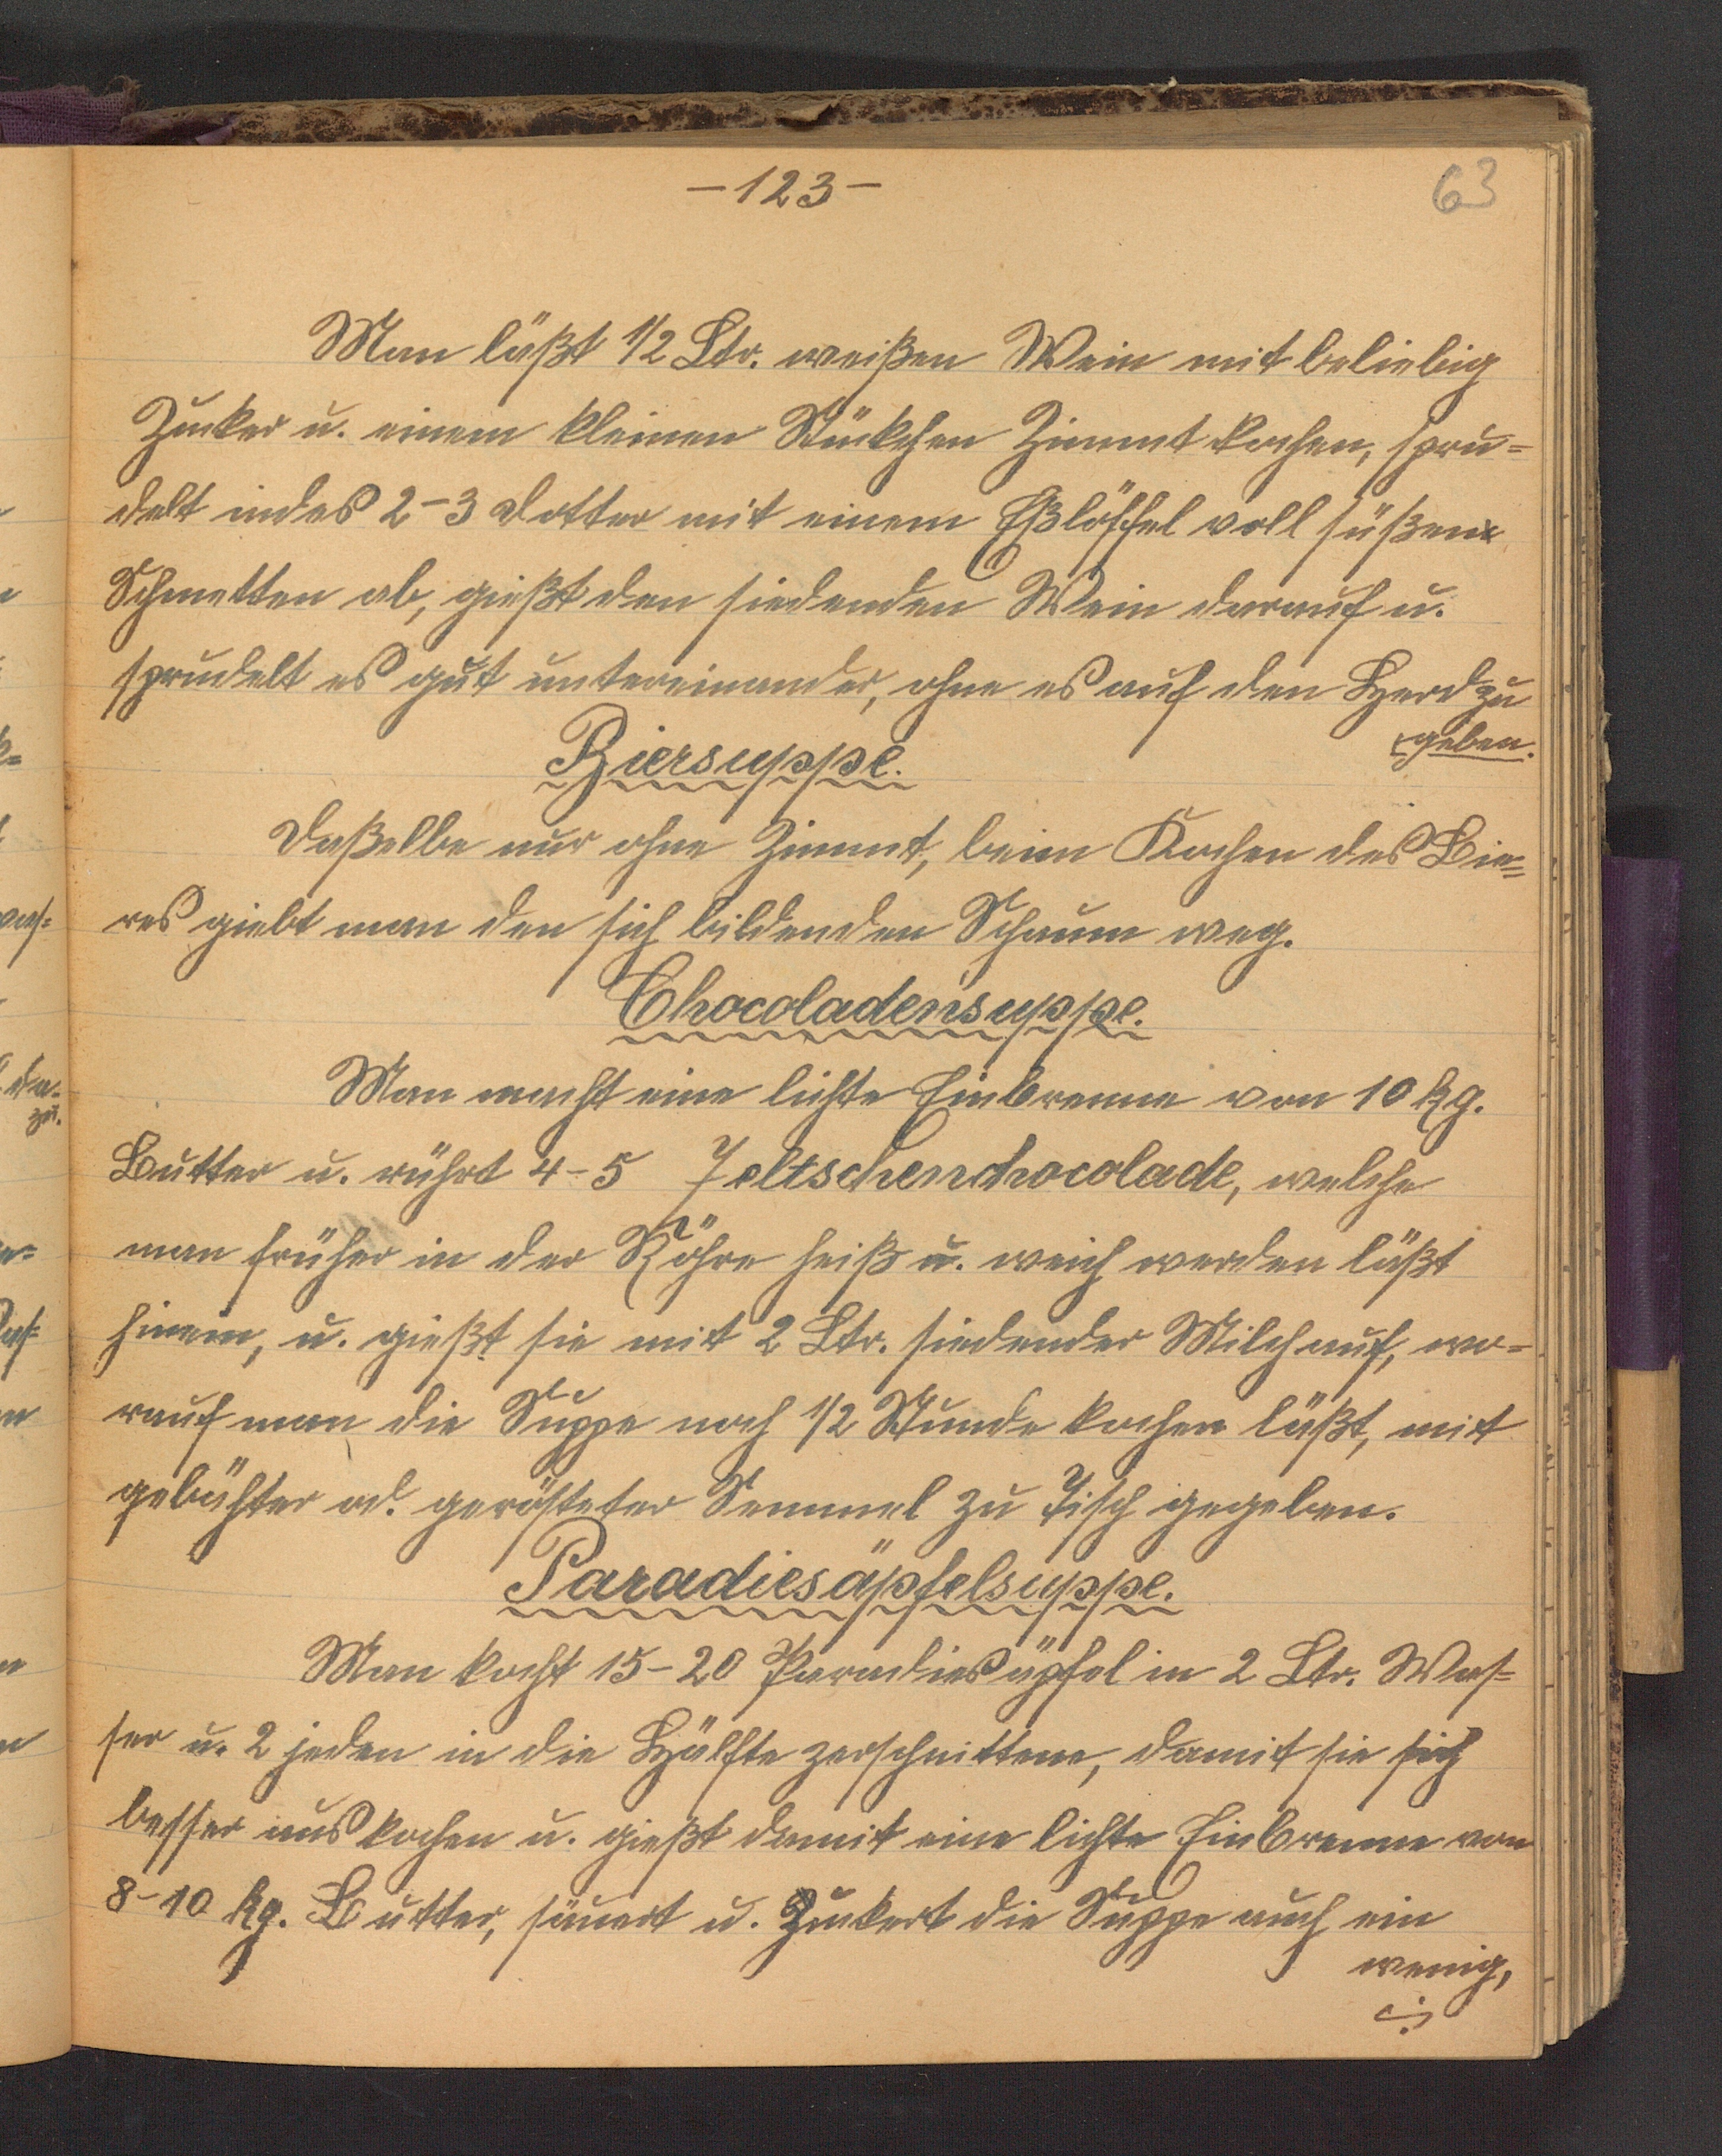 - 123 -
63
Man läßt 1/2 Ltr. weißen Wein mit beliebig
Zucker u. einem kleinen Stückchen Zimmt kochen, spru-
delt indes 2-3 Dotter mit einem Eßlöffel voll süßen
Schmetten ab, gießt den siedenden Wein darauf u.
sprudelt es gut untereinander, ohne es auf den Herd zu
geben.
Biersuppe.
Daßelbe nur ohne Zimmt, beim Kochen des Bie=
res giebt man den sich bildenden Schaum weg.
Chocoladensuppe.
Man macht eine lichte Einbrenne von 10 kg.
Butter u. rührt 4-5 Zeltschenchocolade, welche
man früher in der Röhre heiß u. weich werden läßt
hinein, u. gießt sie mit 2 Ltr. siedender Milch auf, wo-
rauf man die Suppe noch 1/2 Stunde kochen läßt, mit
gebähter od. gerösteter Semmel zu Tisch gegeben.
Paradiesäpfelsuppe.
Man kocht 15-20 Paradiesäpfel in 2 Ltr. Was-
ser u. 2 jeden in die Hälfte zerschnittene, damit sie sich
besser aus kochen u. gießt damit eine lichte Einbrenne von
8-10 kg. Butter, säuert u. Zuckert die Suppe auch ein
wenig,